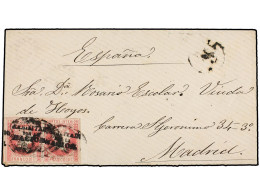 España.
Sra. Da. Rosario Escolar Viuda
de Hoyos.
Carrera S. Geronimo 34-3º
Madrid.